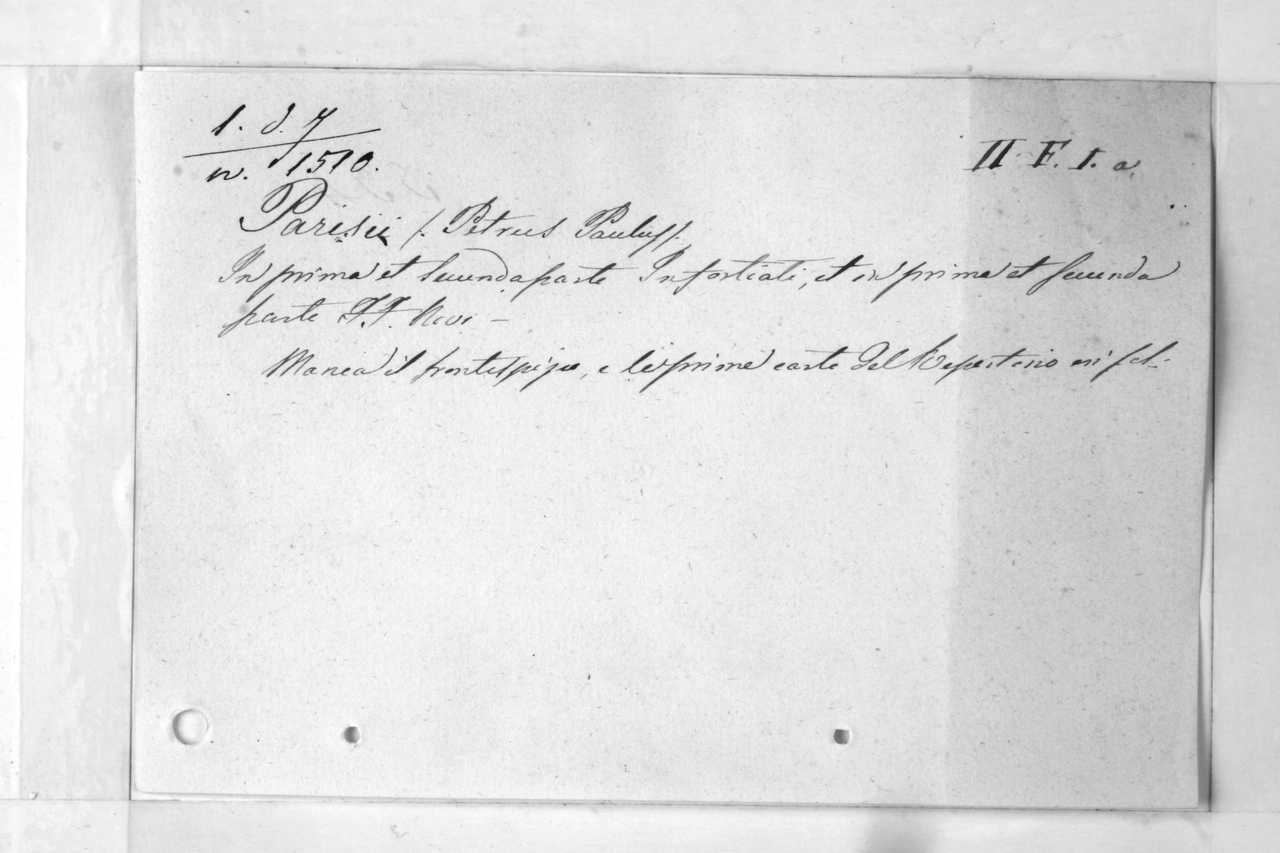 1. d. 7
n. 1510.
II F. 1. a.
Parisii /. Petrus Paulus /.
In prima et secunda parte Infortiati, et in prima et secunda
parte F.F. Novi –
Manca il frontespizio, e le prime carte del Repertorio in fol.